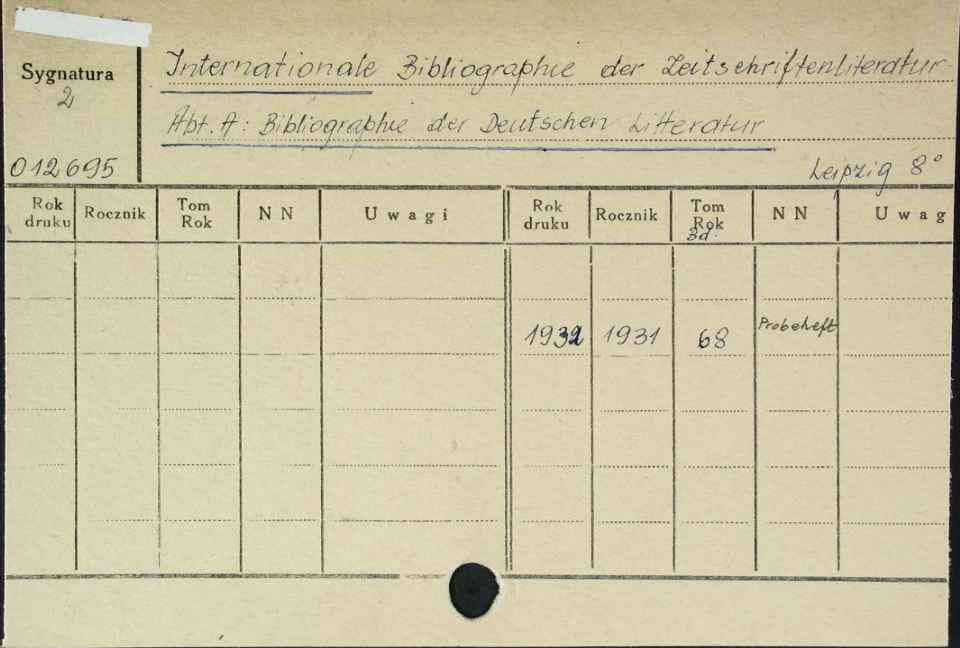 Sygnatura
2
012695
Internationale Bibliographie der Zeitschriftenliteratur
Abt. A: Bibliographie der Deutschen Litteratur
Leipzig 8°
Rok druku Rocznik Tom Rok NN Uwagi Rok druku Rocznik Tom Rok NN Uwag
Bd.
1932 1931 68 Probeheft